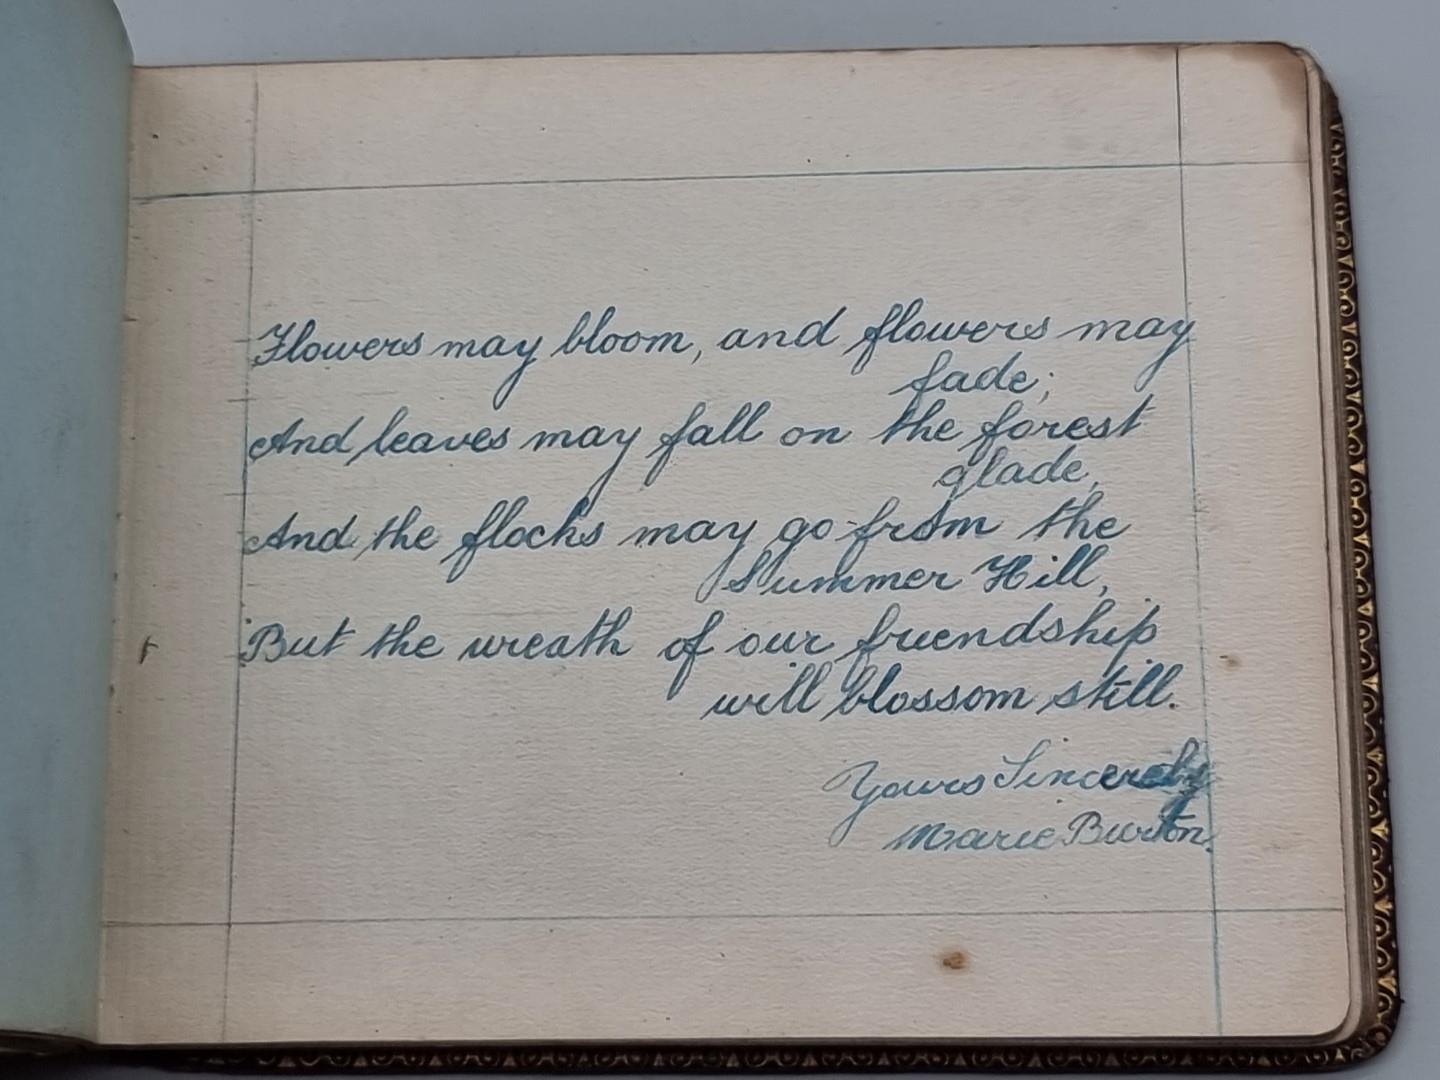 Flowers may bloom, and flowers may
fade;
And leaves may fall on the forest
glade,
And the flocks may go from the
Summer Hill,
But the wreath of our friendship
will blossom still.
Yours Sincerely
Marie Burton.